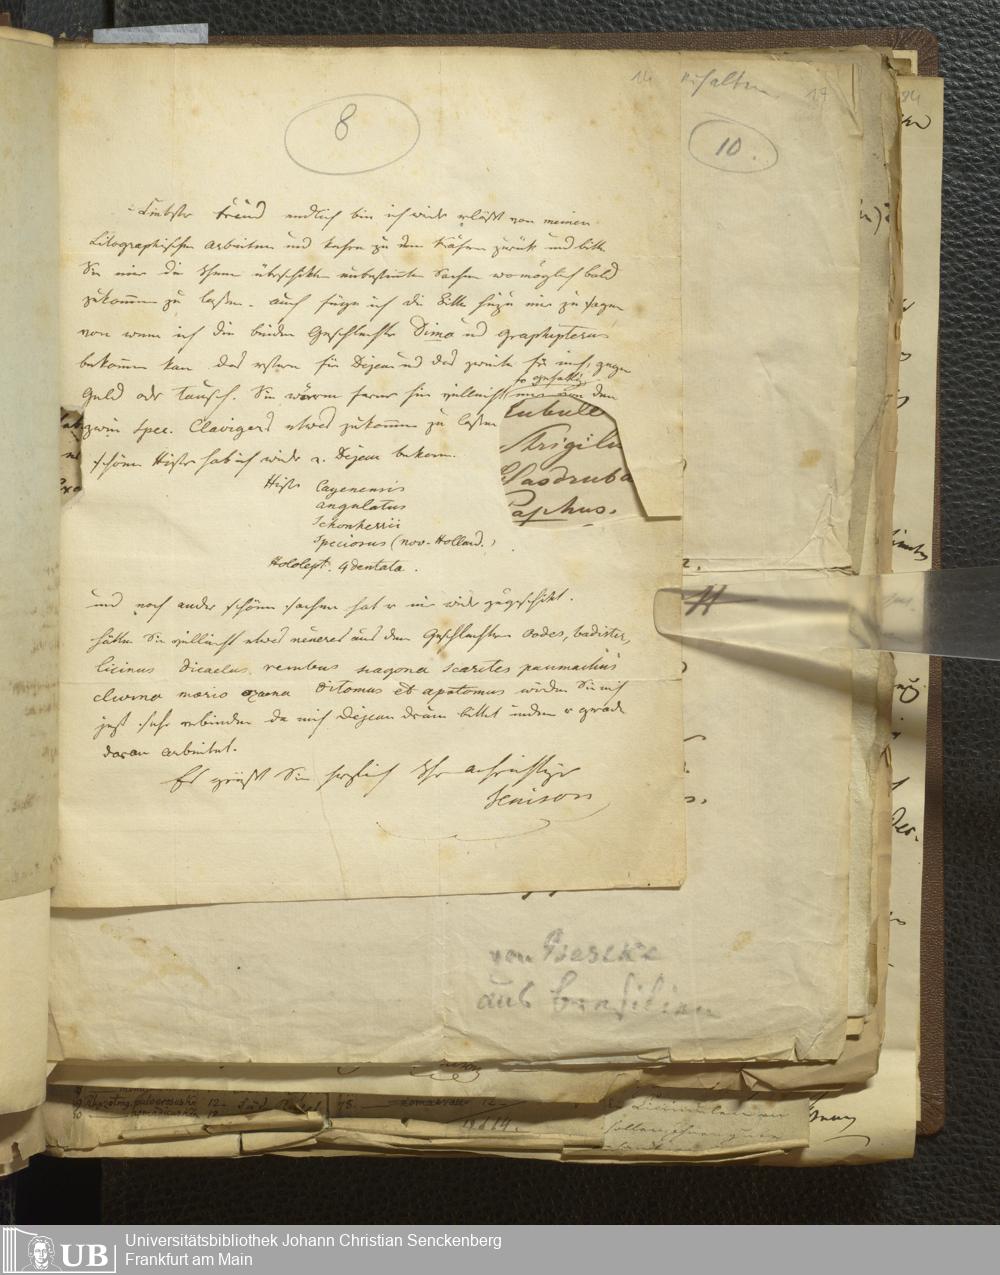 14
erhalten
17
84
8
10.
Liebster Freund endlich bin ich wieder erlößt von meinen
Litographischen Arbeiten und kehre zu den Käfern zurück und bitte
Sie mir die Ihnen überschikten unbestimten Sachen womöglich bald
zukommen zu lassen. auch füge ich die Bitte hinzu mir zu sagen
von wem ich die beiden Geschlechter Dima und graphipterus
bekommen kan das erstere für Dejean und das zweite für mich, gegen
Geld oder Tausch. Sie wären ferner hier vielleicht so gefällig mir von den
zwein Spec. Claviger etwas zukommen zu lassen
schöne Hister hab ich wieder v. Dejean bekom.
Eubule
Strigilu
Hasdruba
Paphus.
Hister Cayenensis
angulatus
Schönherrii
Speciosus (nov. Holland.)
Hololept. 4dentata.
und noch andere schöne sachen hat er mir wieder zugeschikt.
hätten Sie vielleicht etwas neueres aus dem Geschlechtern oodes, badister,
licinus dicaelus, rembus siagona scarites pasimachus
clivina morio ozaena ditomus et apotomus würden Sie mich
jezt sehr verbinden da mich Dejean drum bittet indem er grade
daran arbeitet.
Es grüßt Sie herzlich Ihr aufrichtiger
Jenison
von Beseke
aus Brasilien
Universitätsbibliothek Johann Christian Senckenberg
Frankfurt am Main
UB